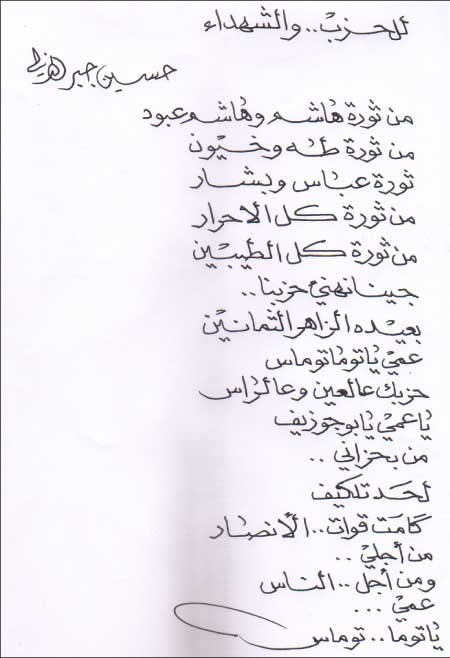 للحزب.. والشهداء
حسين جبر
من ثورة هاشم وهاشم عبود
من ثورة طه وخيون
ثورة عباس وبشار
من ثورة كل الاحرار
من ثورة كل الطيبين
جينا نهني حزبنا..
بعيده الزاهر الثمانين
عمي ياتوما توماس
حزبك عالعين وعالراس
ياعمي يابو جوزيف
من بحزاني ..
لحد تلكيف
گامت قوات.. الأنصار
من أجلي ..
ومن أجل .. الناس
عمي ...
ياتوما.. توماس